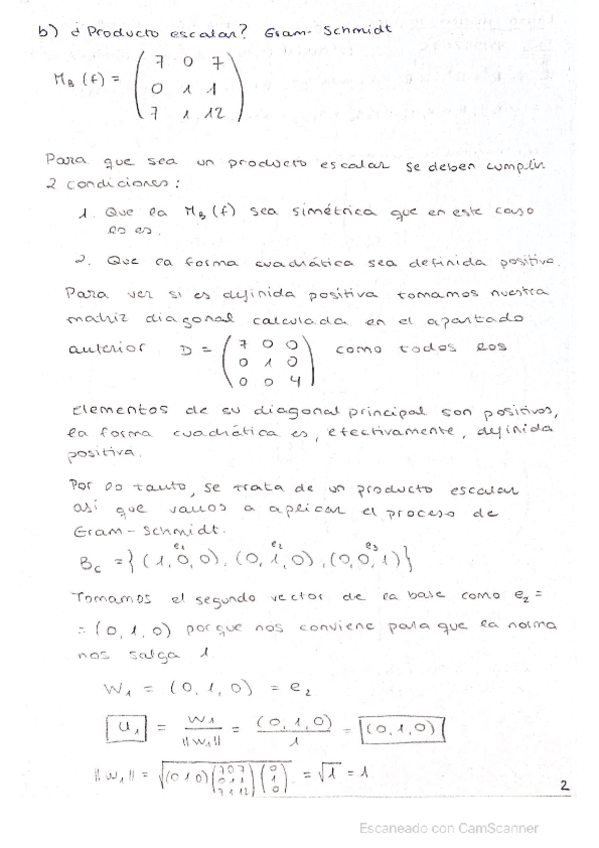 b) ¿Producto escalar? Gram-Schmidt
M_B (f) = ( 7 0 7
0 1 1
7 1 12 )
Para que sea un producto escalar se deben cumplir
2 condiciones:
1. Que la M_B (f) sea simétrica que en este caso
lo es.
2. Que la forma cuadrática sea definida positiva.
Para ver si es definida positiva tomamos nuestra
matriz diagonal calculada en el apartado
anterior D = ( 7 0 0
0 1 0
0 0 4 ) como todos los
Elementos de su diagonal principal son positivos,
la forma cuadrática es, efectivamente, definida
positiva.
Por lo tanto, se trata de un producto escalar
así que vamos a aplicar el proceso de
Gram-Schmidt.
e1 e2 e3
B_C = { (1,0,0), (0,1,0), (0,0,1) }
Tomamos el segundo vector de la base como e2 =
= (0,1,0) porque nos conviene para que la norma
nos salga 1.
W1 = (0,1,0) = e2
u1 = W1 / ||W1|| = (0,1,0) / 1 = (0,1,0)
||W1|| = √( (0 1 0) ( 7 0 7
0 1 1
7 1 12 ) ( 0
1
0 ) ) = √1 = 1
2
Escaneado con CamScanner